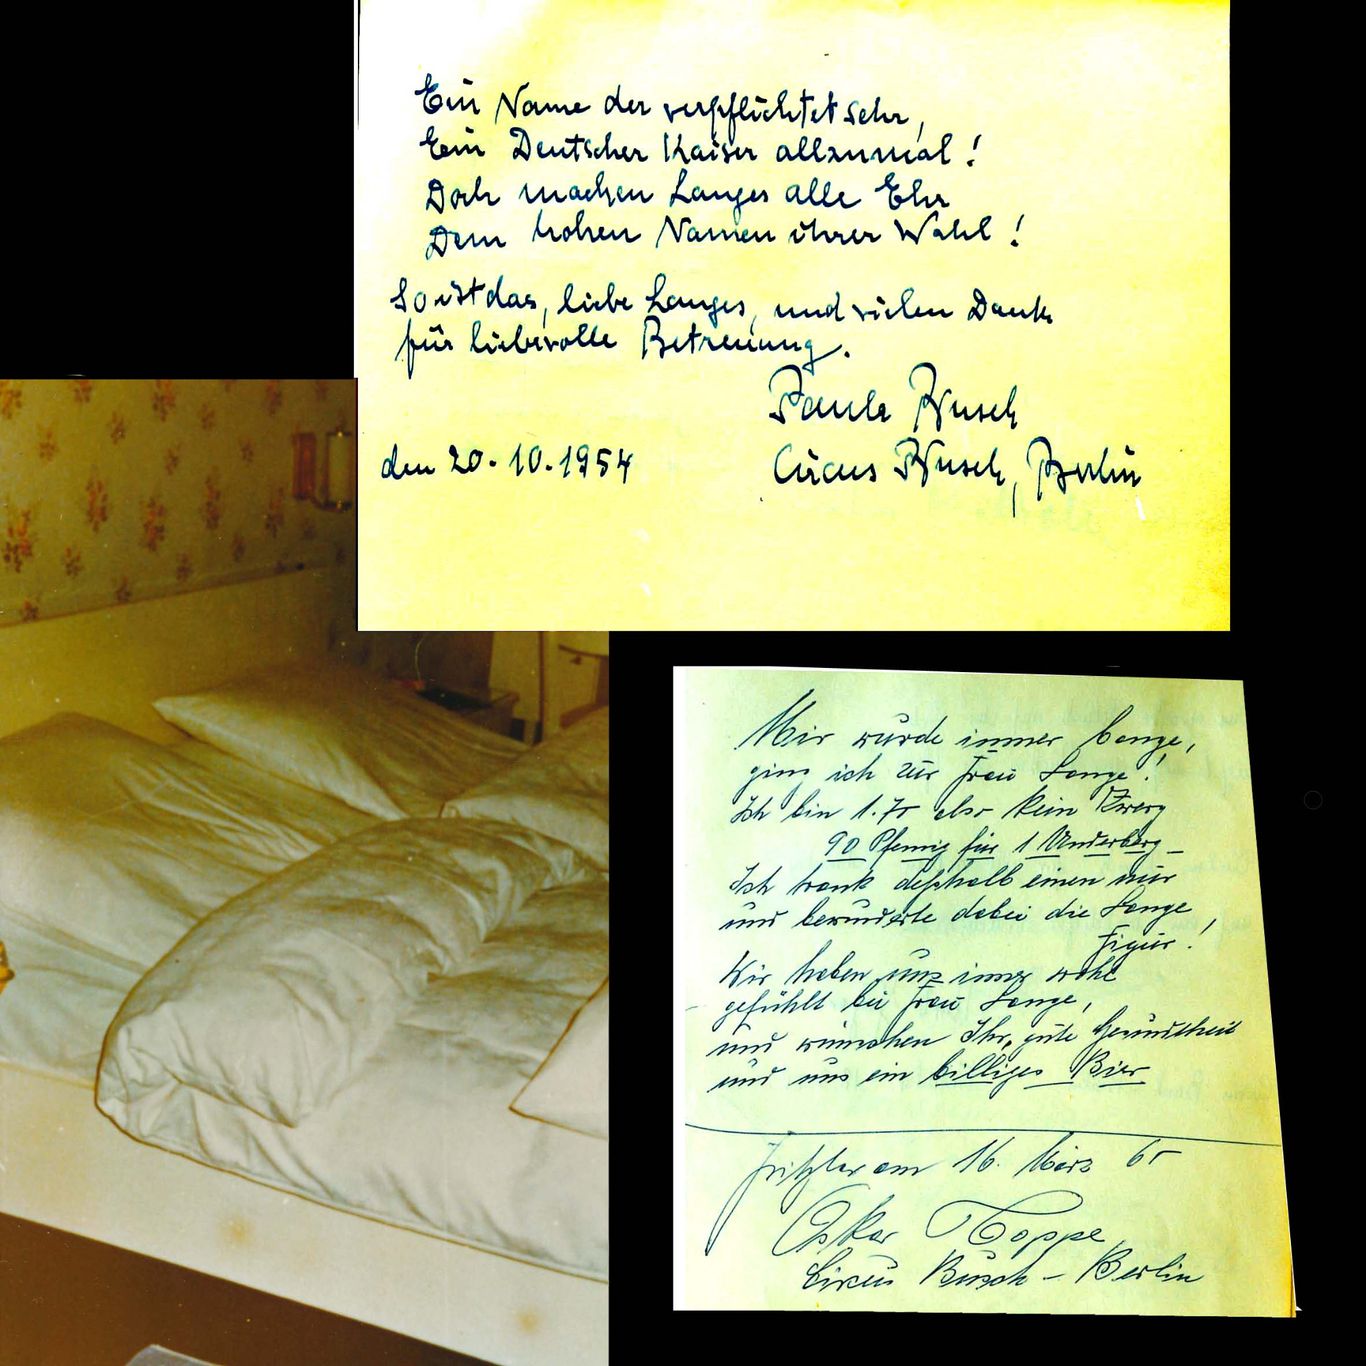 Ein Name der verpflichtet sehr,
Ein Deutscher Kaiser allzumal!
Doch machen Langes alle Ehr
Dem hohen Namen ihrer Wahl!
So ist das, liebe Langes, und vielen Dank
für liebevolle Betreuung.
Paula Busch
den 20.10.1954 Circus Busch, Berlin
Mir wurde immer bange,
ging ich zur Frau Lange!
Ich bin 1.75 also kein Zwerg
90 Pfennig für 1 Underberg
Ich trank deshalb einen nur
und bewunderte dabei die Lange
Figur!
Wir haben uns immer wohl
gefühlt bei Frau Lange,
und wünschen Ihr, gute Gesundtheit
und uns ein billiges Bier
Fritzlar am 16. März 65
Oskar Hoppe
Circus Busch - Berlin